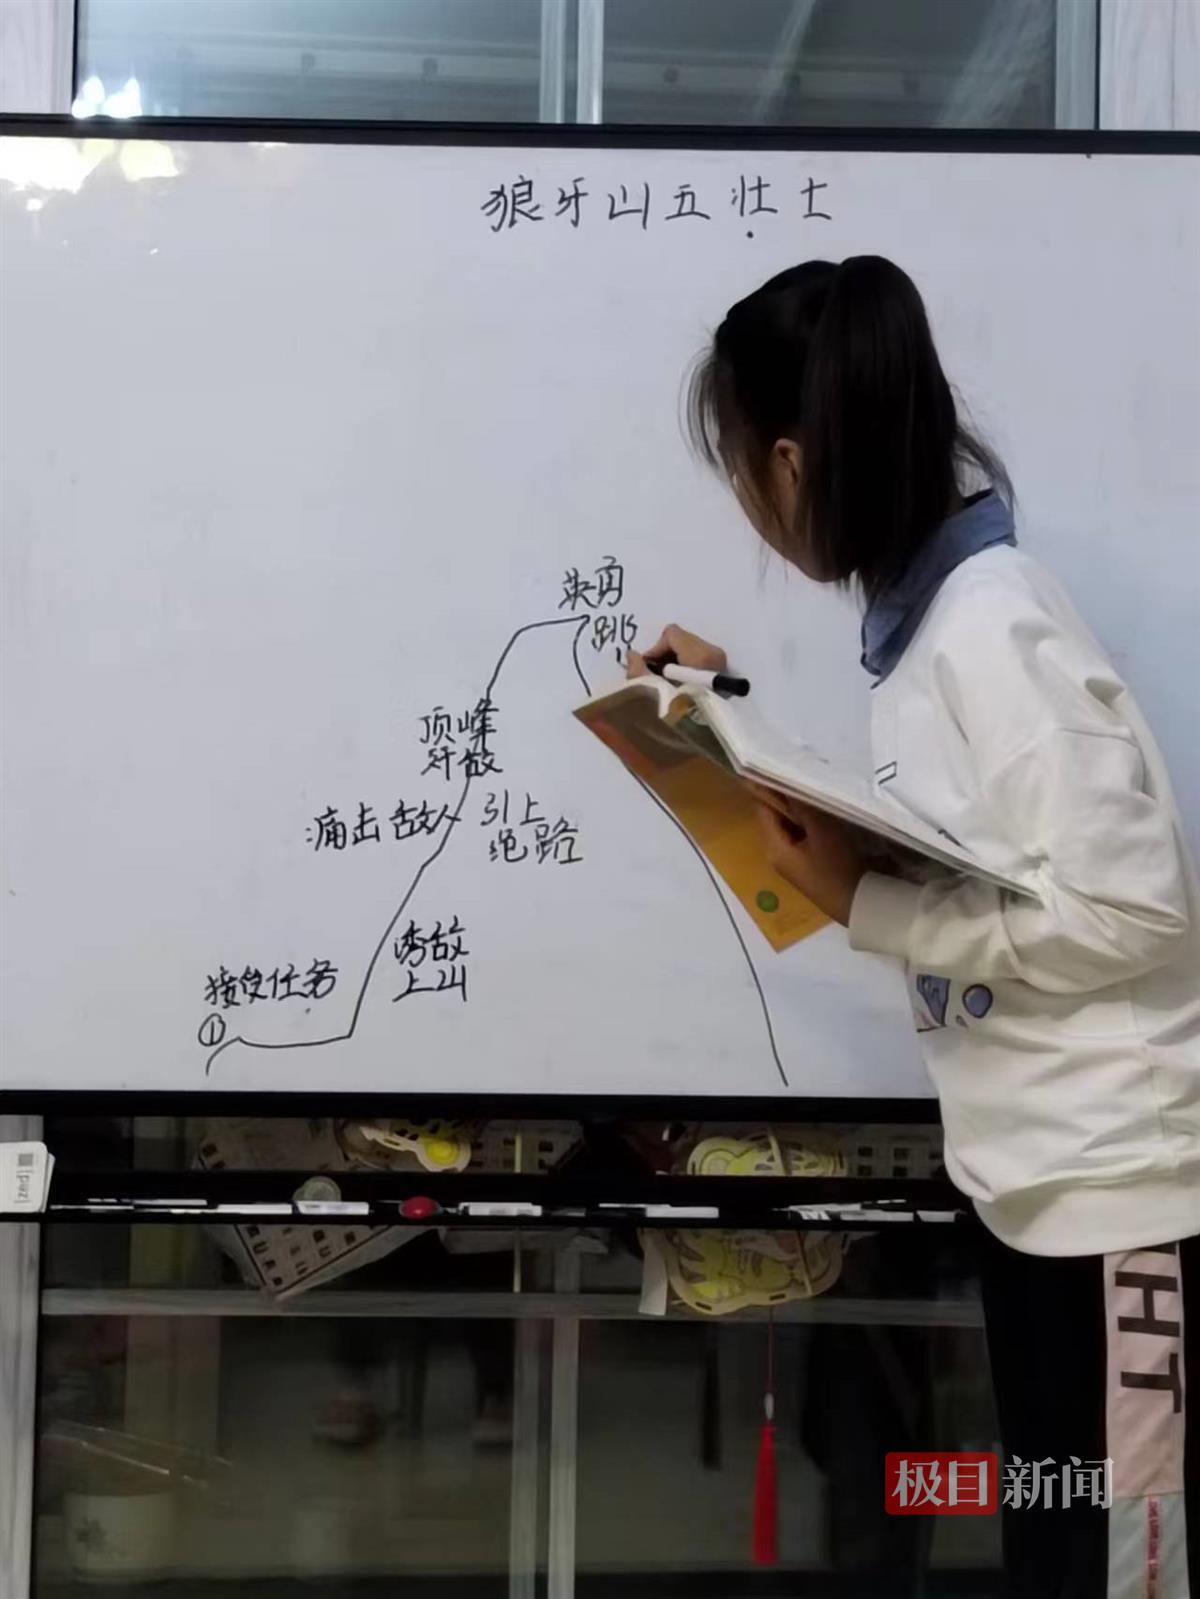 狼牙山五壮士
英勇
跳
顶峰
歼敌
痛击敌人
引上
绝路
诱敌
上山
接受任务
①
THT
极目新闻